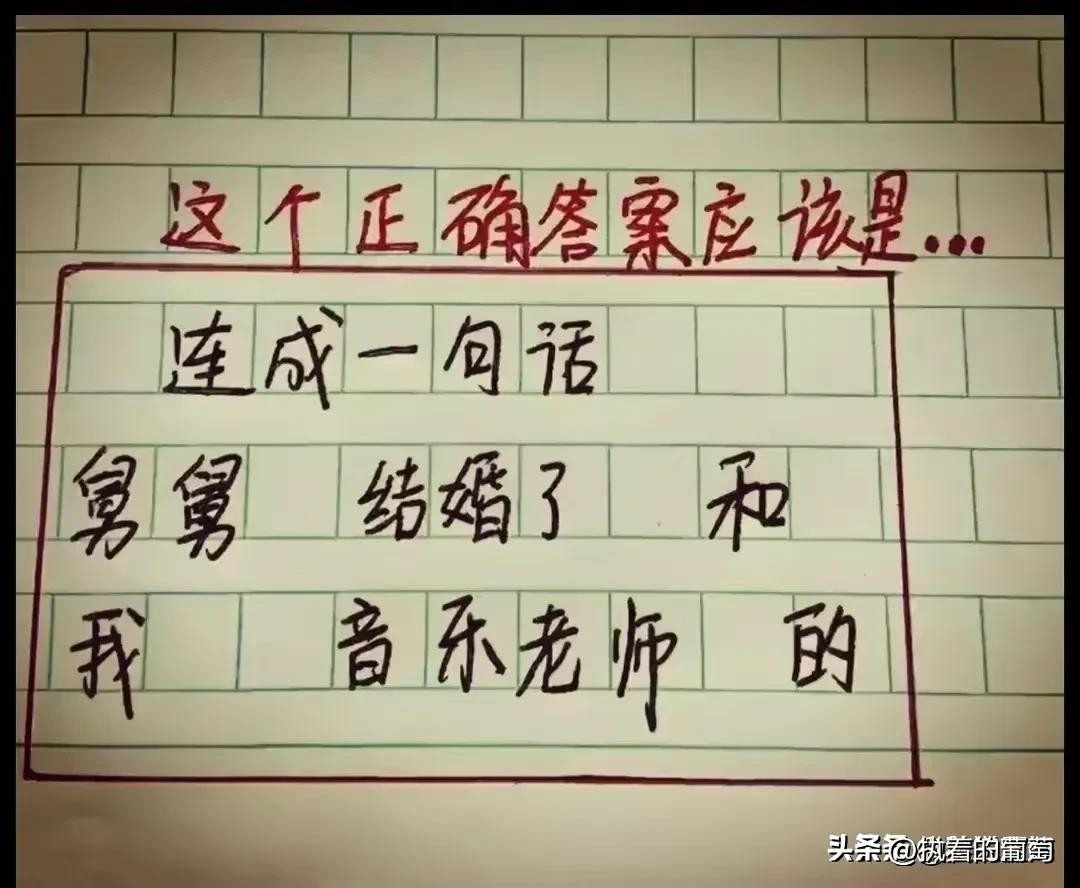 这个正确答案应该是...
连成一句话
舅舅 结婚了 和
我 音乐老师 的
头条 @执着的葡萄